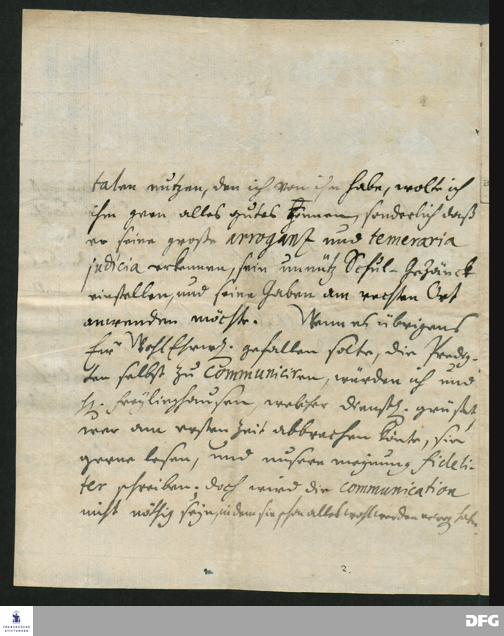 taten nutzen, den ich von ihm habe, wolte ich
ihm gern alles gutes können, sonderlich daß
er seine große arroganz und temeraria
judicia erkennen, sein unnütz Schul-Gezänck
einstellen, und seine Gaben am rechten Ort
anwenden möchte. Wenn es übrigens
Ew WohlEhrw. gefallen solte, die Predig-
ten selbst zu Communiciren, würden ich und
H. Freylinghausen, welcher dienstl. grüßet,
wer am ersten Zeit abbrechen könte, sie
gerne lesen, und unsere meynung fideli-
ter schreiben. doch wird die communication
nicht nöthig seyn, indem sie schon alles wohl werden
2.
FRANCKESCHE
STIFTUNGEN
DFG